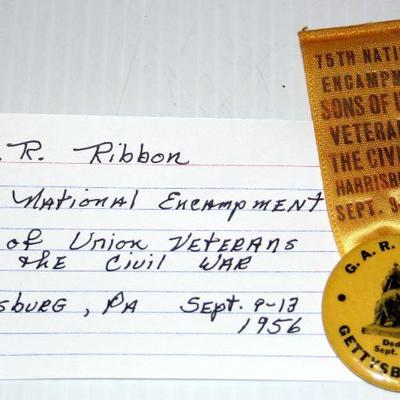 .R. Ribbon
National Encampment
of Union Veterans
the Civil War
sburg, PA Sept. 9-13
1956
75TH NATI
ENCAMPM
SONS OF U
VETERA
THE CIVI
HARRISBU
SEPT. 9-
G.A.R.
Ded
Sept.
GETTYSB